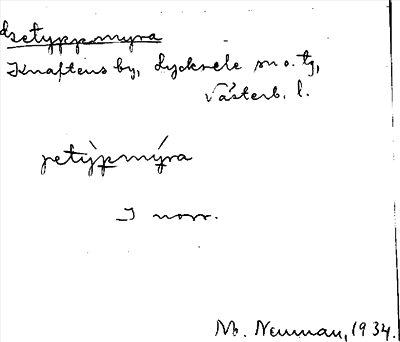 Jsetyppmyra
Knaftens by, Lycksele sn o. tg,
Västerb. l.
jetı̀pmýra
I norr.
M. Neuman, 1934.